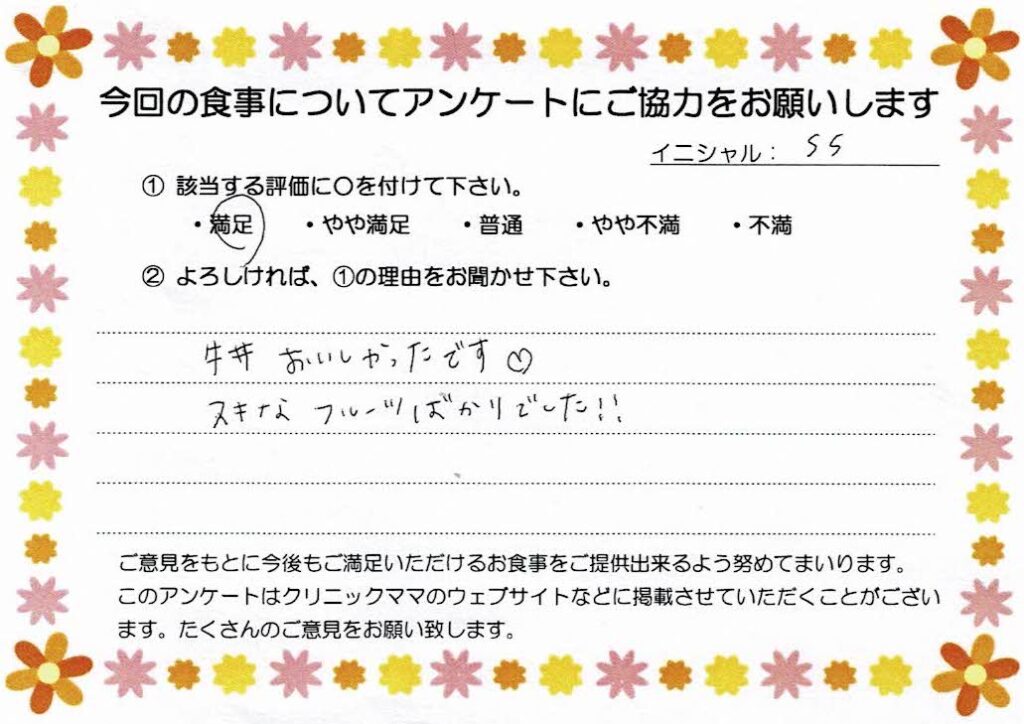 今回の食事についてアンケートにご協力をお願いします
イニシャル： SS
① 該当する評価に○を付けて下さい。
・満足 ・やや満足 ・普通 ・やや不満 ・不満
② よろしければ、①の理由をお聞かせ下さい。
牛丼 おいしかったです♡
スキな フルーツばかりでした!!
ご意見をもとに今後もご満足いただけるお食事をご提供出来るよう努めてまいります。
このアンケートはクリニックママのウェブサイトなどに掲載させていただくことがござい
ます。たくさんのご意見をお願い致します。